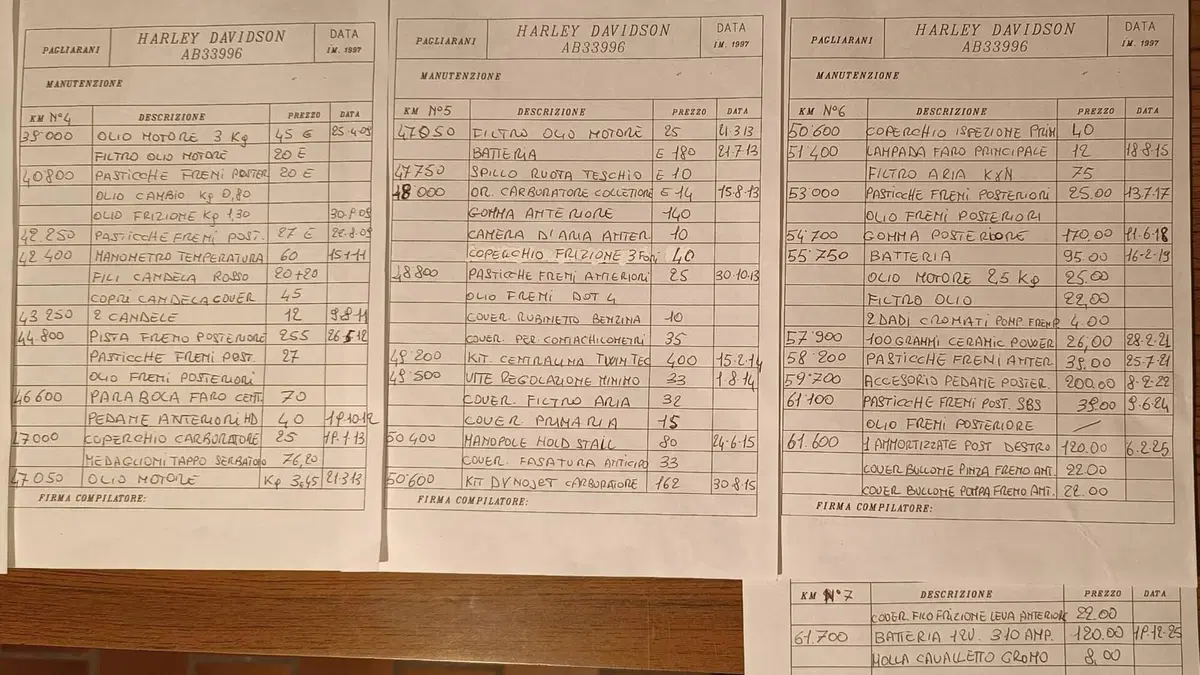 PAGLIARANI HARLEY DAVIDSON AB33996 DATA IM. 1997
MANUTENZIONE
KM N°4 DESCRIZIONE PREZZO DATA
39000 OLIO MOTORE 3 Kg 45 E 25.4.09
FILTRO OLIO MOTORE 20 E
40800 PASTICCHE FRENI POSTER 20 E
OLIO CAMBIO Kg 0,80
OLIO FRIZIONE Kg 1,30 30.9.09
42.250 PASTICCHE FRENI POST. 27 E
42.400 MANOMETRO TEMPERATURA 60 15.1.11
FILI CANDELA ROSSO 20+20
COPRI CANDELA COVER 45
43.250 2 CANDELE 12 9.8.11
44.800 PISTA FRENO POSTERIORE 255 26 5 12
PASTICCHE FRENI POST. 27
OLIO FRENI POSTERIORI
46600 PARABOLA FARO CENT. 70
PEDANE ANTERIORI HD 40 19.10.12
47000 COPERCHIO CARBURATORE 25 19.1.13
MEDAGLIONI TAPPO SERBATOIO 76,20
47.050 OLIO MOTORE Kg 3,45 21.3.13
FIRMA COMPILATORE:
PAGLIARANI HARLEY DAVIDSON AB33996 DATA IM. 1997
MANUTENZIONE
KM N°5 DESCRIZIONE PREZZO DATA
47050 FILTRO OLIO MOTORE 25 21.3.13
BATTERIA E 180 21.7.13
47750 SPILLO RUOTA TESCHIO E 10
48000 OR. CARBURATORE COLLETTORE E 14 15.8.13
GOMMA ANTERIORE 140
CAMERA D'ARIA ANTER. 10
COPERCHIO FRIZIONE 3 Fori 40
48800 PASTICCHE FRENI ANTERIORI 25 30.10.13
OLIO FRENI DOT 4
COVER. RUBINETTO BENZINA 10
COVER. PER CONTACHILOMETRI 35
49200 KIT. CENTRALINA TWIN TEC 400 15.2.14
49.500 VITE REGOLAZIONE MINIMO 33 1.8.14
COVER. FILTRO ARIA 32
COVER. PRIMARIA 15
50400 MANOPOLE HOLD STAIL 80 24.6.15
COVER. FASATURA ANTICIPO 33
50.600 KIT DYNOJET CARBURATORE 162 30.8.15
FIRMA COMPILATORE:
PAGLIARANI HARLEY DAVIDSON AB33996 DATA IM. 1997
MANUTENZIONE
KM N°6 DESCRIZIONE PREZZO DATA
50.600 COPERCHIO ISPEZIONE PRIM 40
51 400 LAMPADA FARO PRINCIPALE 12 18.8.15
FILTRO ARIA KXN 75
53000 PASTICCHE FRENI POSTERIORI 25.00 13.7.17
OLIO FRENI POSTERIORI
54700 GOMMA POSTERIORE 170.00 11.6.18
55.750 BATTERIA 95.00 16-2-19
OLIO MOTORE 2,5 Kg 25.00
FILTRO OLIO 22,00
2 DADI CROMATI POMP FREMP 4.00
57'900 100 GRAMMI CERAMIC POWER 26,00 28-2-21
58'200 PASTICCHE FRENI ANTER 39.00 25-7-21
59'700 ACCESORIO PEDANE POSTER. 200.00 8-2-22
61'100 PASTICCHE FRENI POST. SBS 39.00 9-6-24
OLIO FRENI POSTERIORE /
61.600 1 AMMORTIZZATE POST DESTRO 120.00 6.2.25
COVER BULLONE PINZA FRENO ANT. 22.00
COVER BULLONE POMPA FRENO ANT. 22.00
FIRMA COMPILATORE:
KM N°7 DESCRIZIONE PREZZO DATA
COVER FILO FRIZIONE LEVA ANTERIORE 22.00
61.700 BATTERIA 12V. 310 AMP. 120.00 19-12-25
MOLLA CAVALLETTO CROMO 8,00